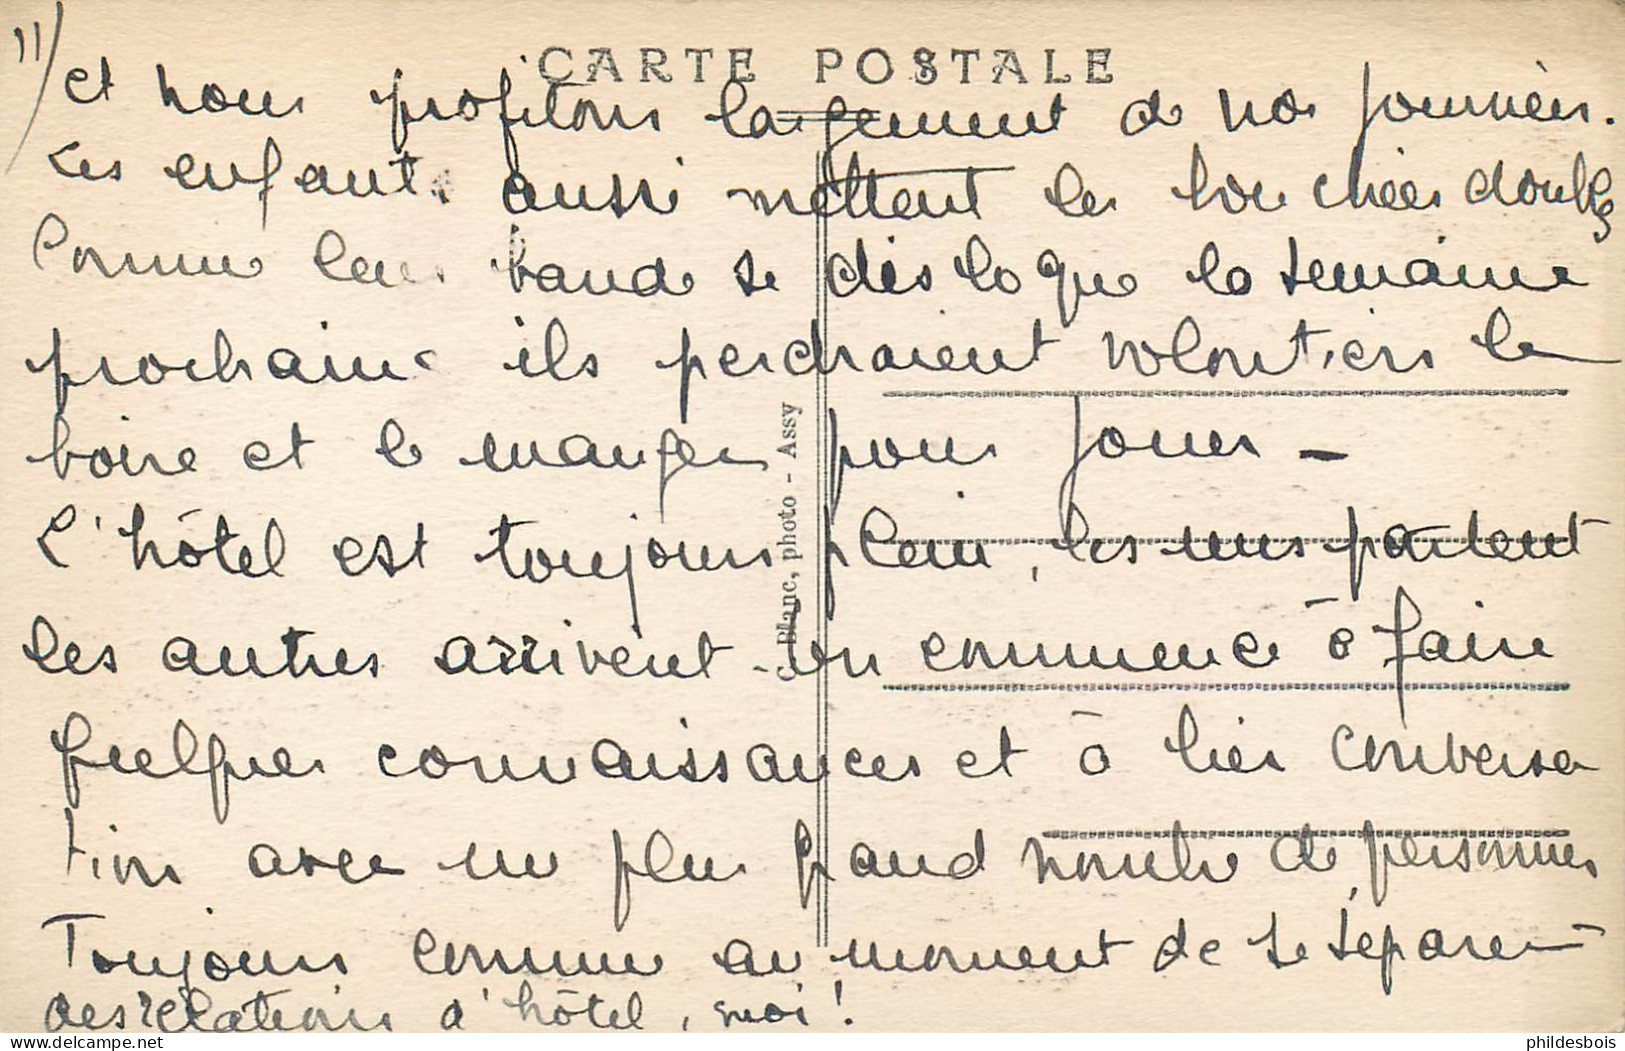 CARTE POSTALE
11/
et nous profitons largement de nos journées.
Les enfants aussi mettent les bouchées doubles
Comme leur bande se disloque la semaine
prochaine ils perdraient volontiers le
boire et le manger pour jouer -
L'hôtel est toujours plein, les uns partent
les autres arrivent - on commence à faire
quelques connaissances et à lier conversa
tion avec un plus grand nombre de personnes
Toujours comme au moment de se séparer -
des relations d'hôtel, quoi!
C. Blanc, photo - Assy
delcampe.net
philde­sbois